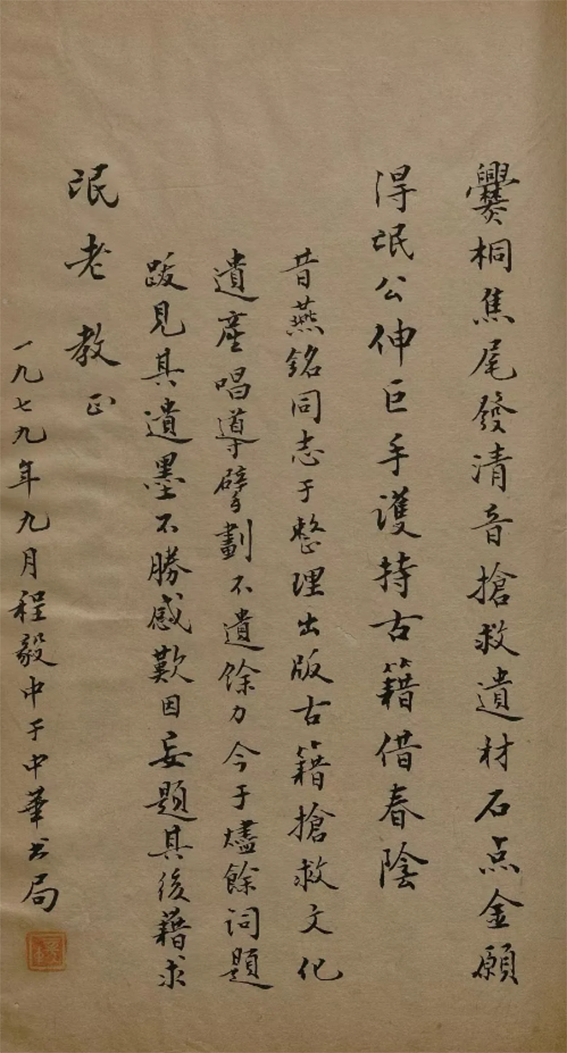 爨桐焦尾發清音搶救遺材石点金願
得氓公伸巨手護持古籍借春陰
昔燕銘同志于整理出版古籍搶救文化
遺産唱導擘劃不遺餘力今于燼餘詞題
跋見其遺墨不勝感歎因妄題其後藉求
氓老教正
一九七九年九月程毅中于中華书局